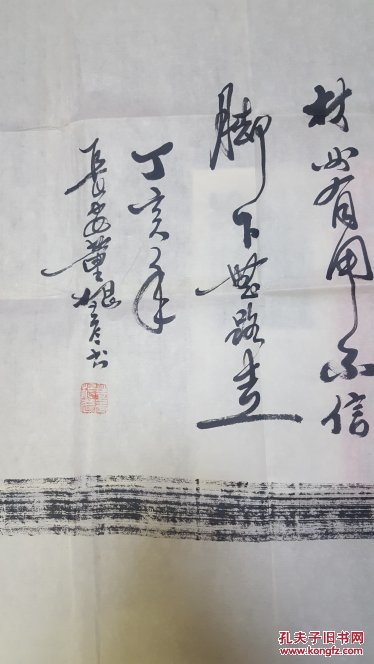 材必有用不信
脚下無路走
丁亥年
長安董书
孔夫子旧书网
www.kongfz.com